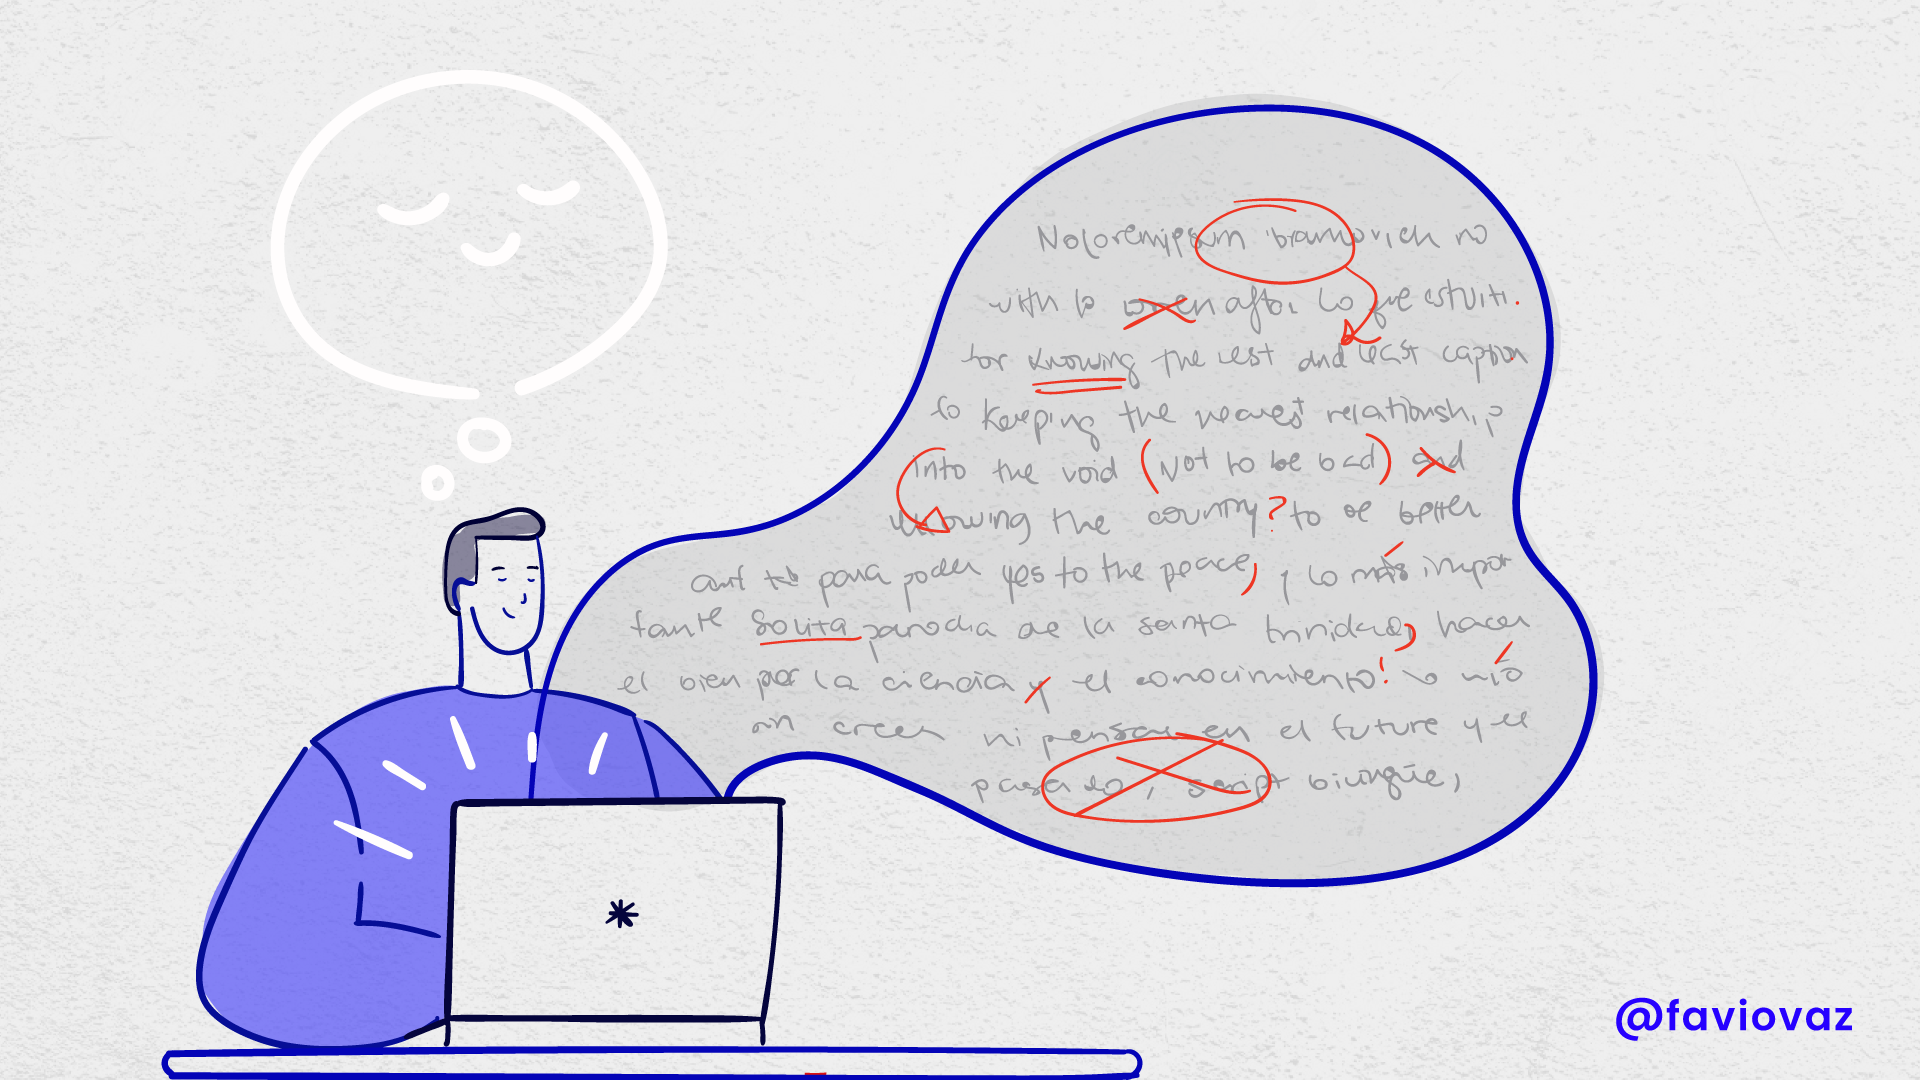 with lo after lo que
for knowing the rest and least caption
to keeping the nearest relationship
into the void (Not to be bad) and
knowing the country? to be better
para poder yes to the peace, y lo más impor
tante Solita parodia de la santa trinidad, hacer
el bien por la ciencia y el conocimiento! lo mío
sin creer ni pensar en el future y el
pasado, script bilingüe,
@faviovaz